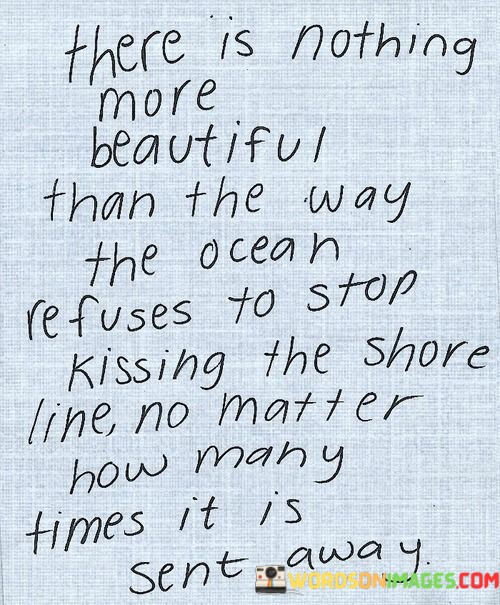 there is nothing
more
beautiful
than the way
the ocean
refuses to stop
kissing the shore
line, no matter
how many
times it is
sent away.
WORDSONIMAGES.COM